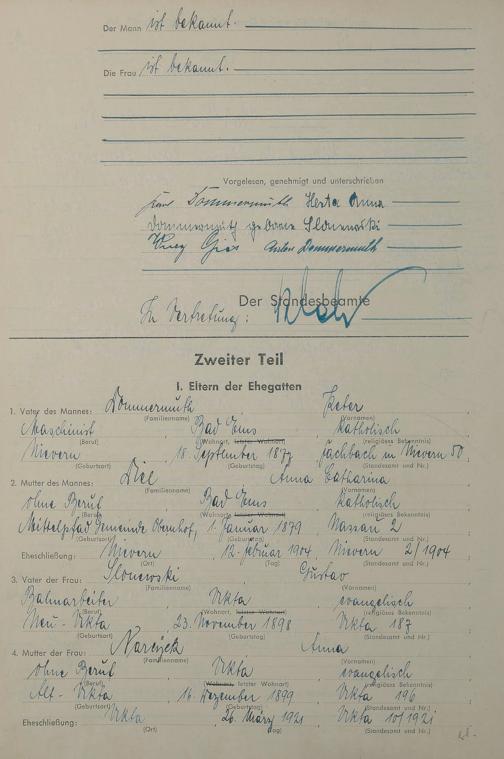 Der Mann ist bekannt.
Die Frau ist bekannt.
Vorgelesen, genehmigt und unterschrieben
Dommermuth Herta Anna
Dommermuth geborene Slonewski
Anton Dommermuth
Der Standesbeamte
In Vertretung:
Zweiter Teil
I. Eltern der Ehegatten
1. Vater des Mannes: Dommermuth Peter
(Familienname) (Vornamen)
Maschinist Bad Ems katholisch
(Beruf) (Wohnort, letzter Wohnort) (religiöses Bekenntnis)
Nievern 18. September 1877 Fachbach in Nievern 50.
(Geburtsort) (Geburtstag) (Standesamt und Nr.)
2. Mutter des Mannes: Diel Anna Catharina
(Familienname) (Vornamen)
ohne Beruf Bad Ems katholisch
(Beruf) (Wohnort, letzter Wohnort) (religiöses Bekenntnis)
Mittelpfad Gemeinde Obernhof, 1. Januar 1879 Nassau 2
(Geburtsort) (Geburtstag) (Standesamt und Nr.)
Eheschließung: Nievern 12. Februar 1904 Nievern 2/1904
(Ort) (Tag) (Standesamt und Nr.)
3. Vater der Frau: Slonewski Gustav
(Familienname) (Vornamen)
Bahnarbeiter Ukta evangelisch
(Beruf) (Wohnort, letzter Wohnort) (religiöses Bekenntnis)
Neu-Ukta 23. November 1898 Ukta 187
(Geburtsort) (Geburtstag) (Standesamt und Nr.)
4. Mutter der Frau: Narcijek Anna
(Familienname) (Vornamen)
ohne Beruf Ukta evangelisch
(Beruf) (Wohnort, letzter Wohnort) (religiöses Bekenntnis)
Alt-Ukta 16. Dezember 1899 Ukta 196
(Geburtsort) (Geburtstag) (Standesamt und Nr.)
Eheschließung: Ukta 26. März 1921 Ukta 10/1921
(Ort) (Tag) (Standesamt und Nr.)